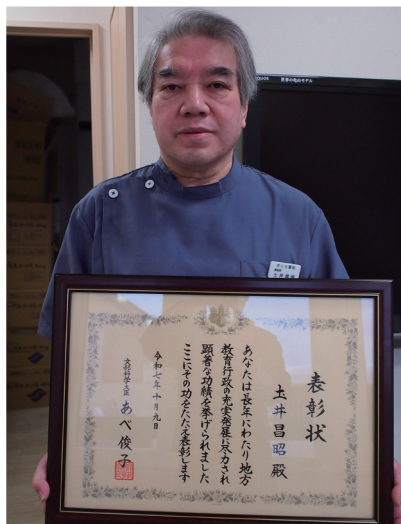 表彰状
土井昌昭殿
あなたは長年にわたり地方
教育行政の充実発展に尽力され
顕著な功績を挙げられました
ここにその功をたたえ表彰します
令和七年十月九日
文部科学大臣 あべ俊子